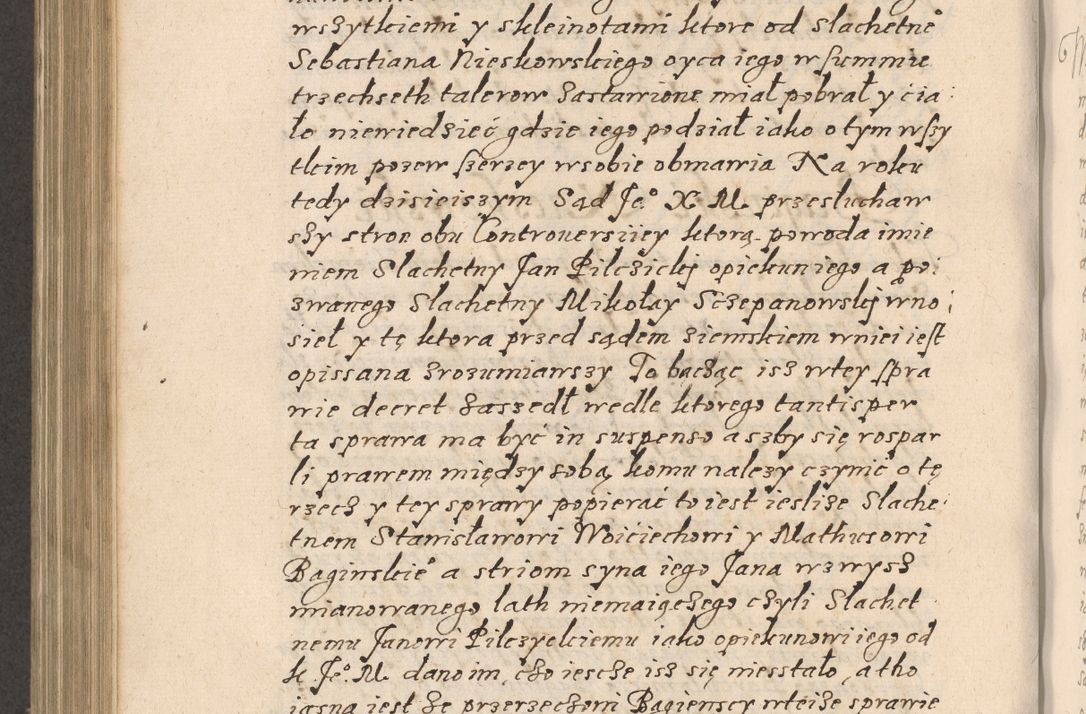 wszytkiemi y skleinotami ktore od Slachetne°
Sebastiana Nieskowskiego oyca iego w summie
trzechseth talerow zastawione miał pobrał y cia
ło niewiedzieć gdzie iego podział iako o tym wszy
tkim pozew szerzey w sobie obmawia Na roku
tedy dzisieiszym Sąd Je° X. M. przesłuchaw
szy stron obu Controuersiiey ktorą powoda imie
niem Slachetny Jan Pilczickj opiekun iego a po
zwanego Slachetny Mikołay Sczepanowskj wno
sieł y tę ktora przed sądem ziemskiem w niei iest
opissana zrozumiawszy To bacząc isz w tey spra
wie decret zaszedł wedle ktorego tantisper
ta sprawa ma być in suspenso aszby się rospar
li prawem między sobą komu nalezy czynić o tę
rzecz y tey sprawy popierać to iest ieslize Slache
tnem Stanisławowi Woiciechowi y Mathusowi
Baginskie° a striom syna iego Jana wzwysz
mianowanego lath niemaiączego czyli Slachet
nemu Janowi Pilczyckiemu iako opiekunowi iego od
k Je°. M. dano im, czo iescze isz się niesstało, a tho
iasna iest że przerzeczoni Bagienscy w teize sprawie